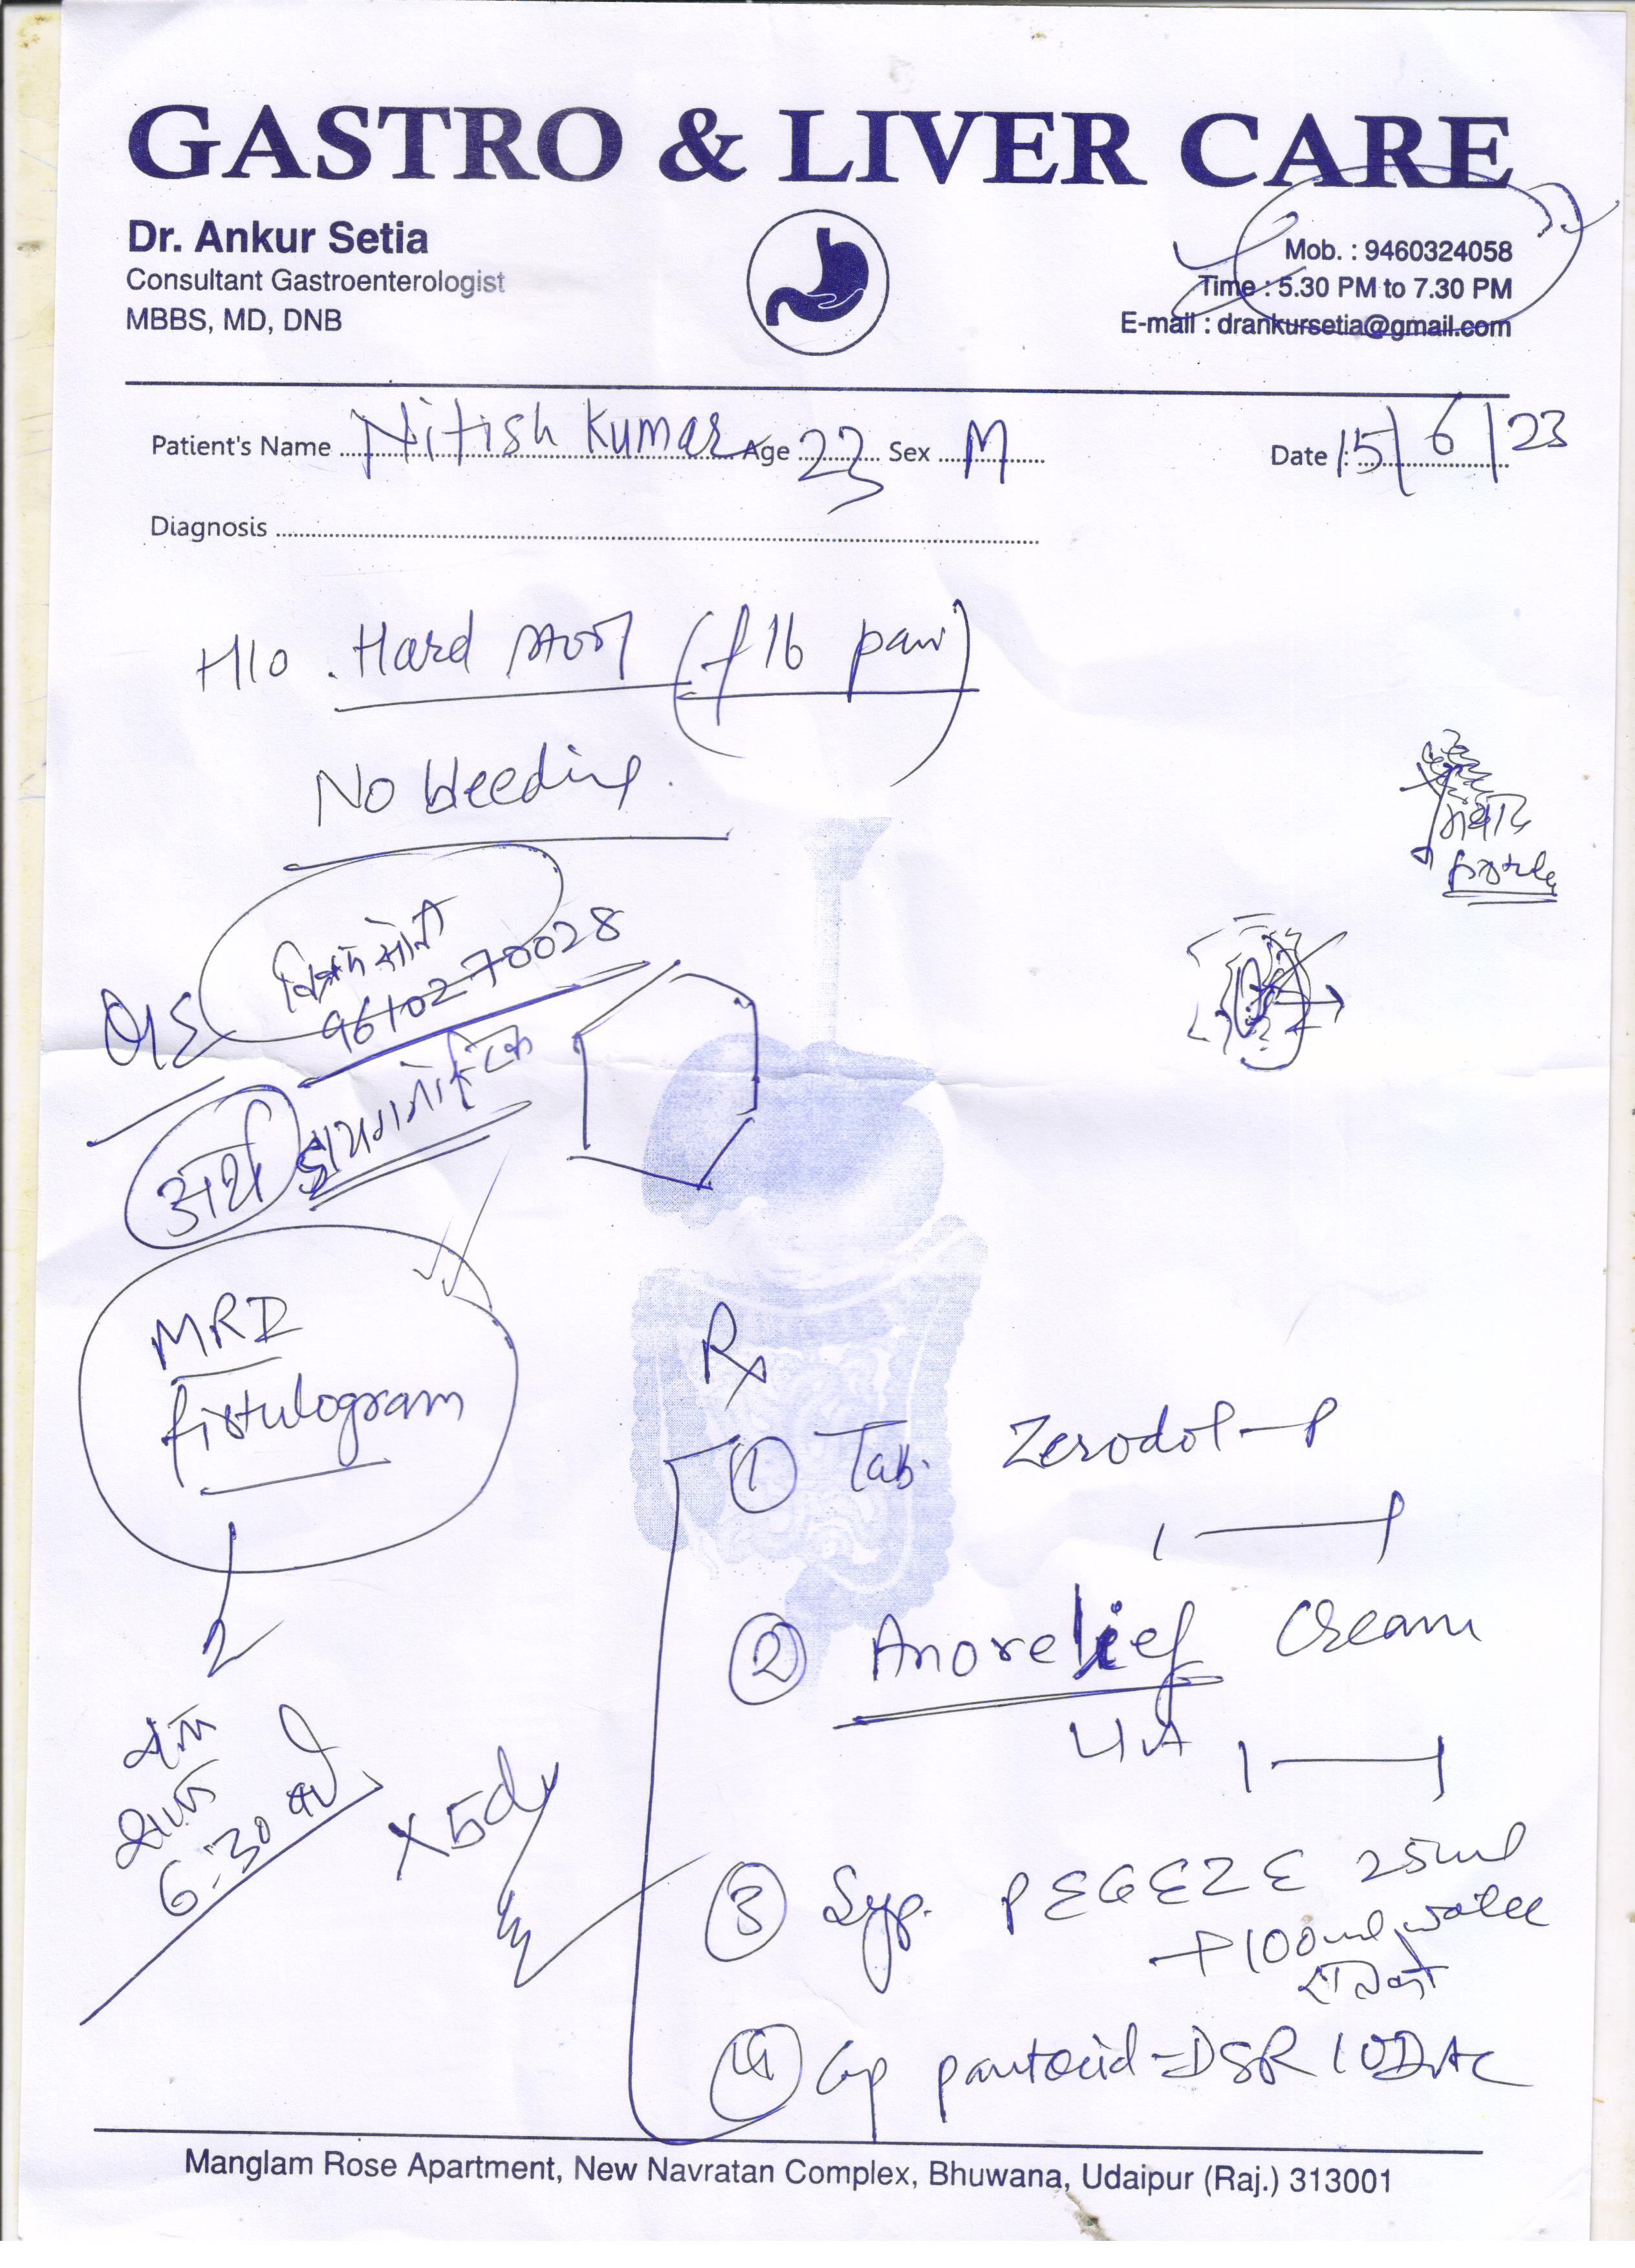 GASTRO & LIVER CARE
Dr. Ankur Setia
Consultant Gastroenterologist
MBBS, MD, DNB
Mob. : 9460324058
Time : 5.30 PM to 7.30 PM
E-mail : drankursetia@gmail.com
Patient's Name Nitish Kumar Age 23 Sex M
Date : 15/6/23
Diagnosis
H/o . Hard stool (f/b pain)
No bleeding.
मवाद
fistula
9610270028
अर्थ डायग्नोस्टिक
MRI
fistulogram
Rx
① Tab. Zerodol-P
1 — 1
② Anorelief Cream
L/A 1 — 1
शाम
6-30 बजे
x5d
③ Syp. PEGEZE 25ml
+100ml water
④ Cap pantocid-DSR 1 OD AC
Manglam Rose Apartment, New Navratan Complex, Bhuwana, Udaipur (Raj.) 313001